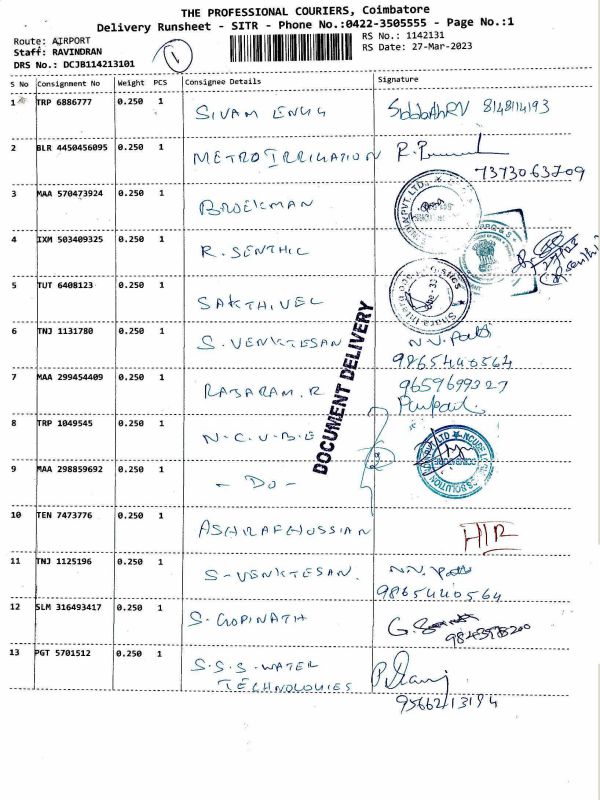 THE PROFESSIONAL COURIERS, Coimbatore
Delivery Runsheet - SITR - Phone No.:0422-3505555 - Page No.:1
Route: AIRPORT
Staff: RAVINDRAN
DRS No.: DCJB114213101
1
RS No.: 1142131
RS Date: 27-Mar-2023
S No Consignment No Weight PCS Consignee Details Signature
1 TRP 6886777 0.250 1 SIVAM ENGG 8148114193
2 BLR 4450456095 0.250 1 METRO IRRIGATION
7373063709
3 MAA 570473924 0.250 1 BROEKMAN
4 IXM 503409325 0.250 1 R. SENTHIL
5 TUT 6408123 0.250 1 SAKTHIVEL
6 TNJ 1131780 0.250 1 S. VENKTESAN N.V.
9865440564
7 MAA 299454409 0.250 1 RAJARAM. R 9659699327
8 TRP 1049545 0.250 1 N.C.U.B.E
9 MAA 298859692 0.250 1 - DO -
DOCUMENT DELIVERY
10 TEN 7473776 0.250 1 ASHRAF HUSSIAN
11 TNJ 1125196 0.250 1 S-VENKTESAN. N.V.
9865440564
12 SLM 316493417 0.250 1 S. GOPINATH
13 PGT 5701512 0.250 1 S.S.S-WATER
TECHNOLOGIES
9566213194